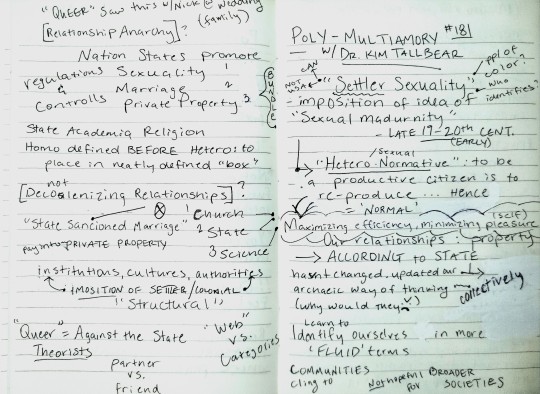 "QUEER" saw this w/Nick @ wedding
(family)
[Relationship Anarchy]?
Nation States promote
regulations Sexuality 1
& Marriage 2
Controlls Private Property 3
BUNDLE
State Academia Religion
Homo defined BEFORE Hetero: to
place in neatly defined "box"
not
[Decolenizing Relationships]?
"State Sancioned Marriage"
1 Church
2 State
3 Science
pay into PRIVATE PROPERTY
institutions, cultures, authorities
IMPOSITION OF SETTLER/COLONIAL
"Structural"
"Queer" = Against the State
Theorists
"Web"
vs.
Categories
partner
vs.
friend
POLY-MULTIAMORY #181
w/ DR. KIM TALLBEAR
CAN
ppl of
color?
who
identifies?
"Settler Sexuality"
- imposition of idea of
"Sexual madurnity"
- LATE 19-20th CENT.
(EARLY)
/sexual
"Hetero-Normative": to be
a productive citizen is to
re-produce ... Hence
= "NORMAL"
(self)
Maximizing efficiency, minimizing pleasure
Our relationships: property
→ ACCORDING to STATE
hasnt changed. updated our
archaeic way of thinking
collectively
(why would they?)
Learn to
Identify ourselves in more
'FLUID' terms
COMMUNITIES
cling to Not hopeful BROADER
for SOCIETIES